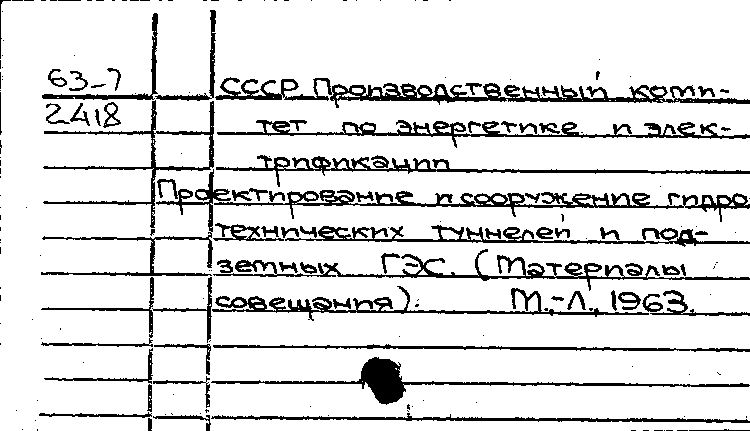 63-7 СССР Производственный коми-
2418 тет по энергетике и элек-
трификации
Проектирование и сооружение гидро
технических туннелей и под-
земных ГЭС. (Материалы
совещания). М.,-Л., 1963.